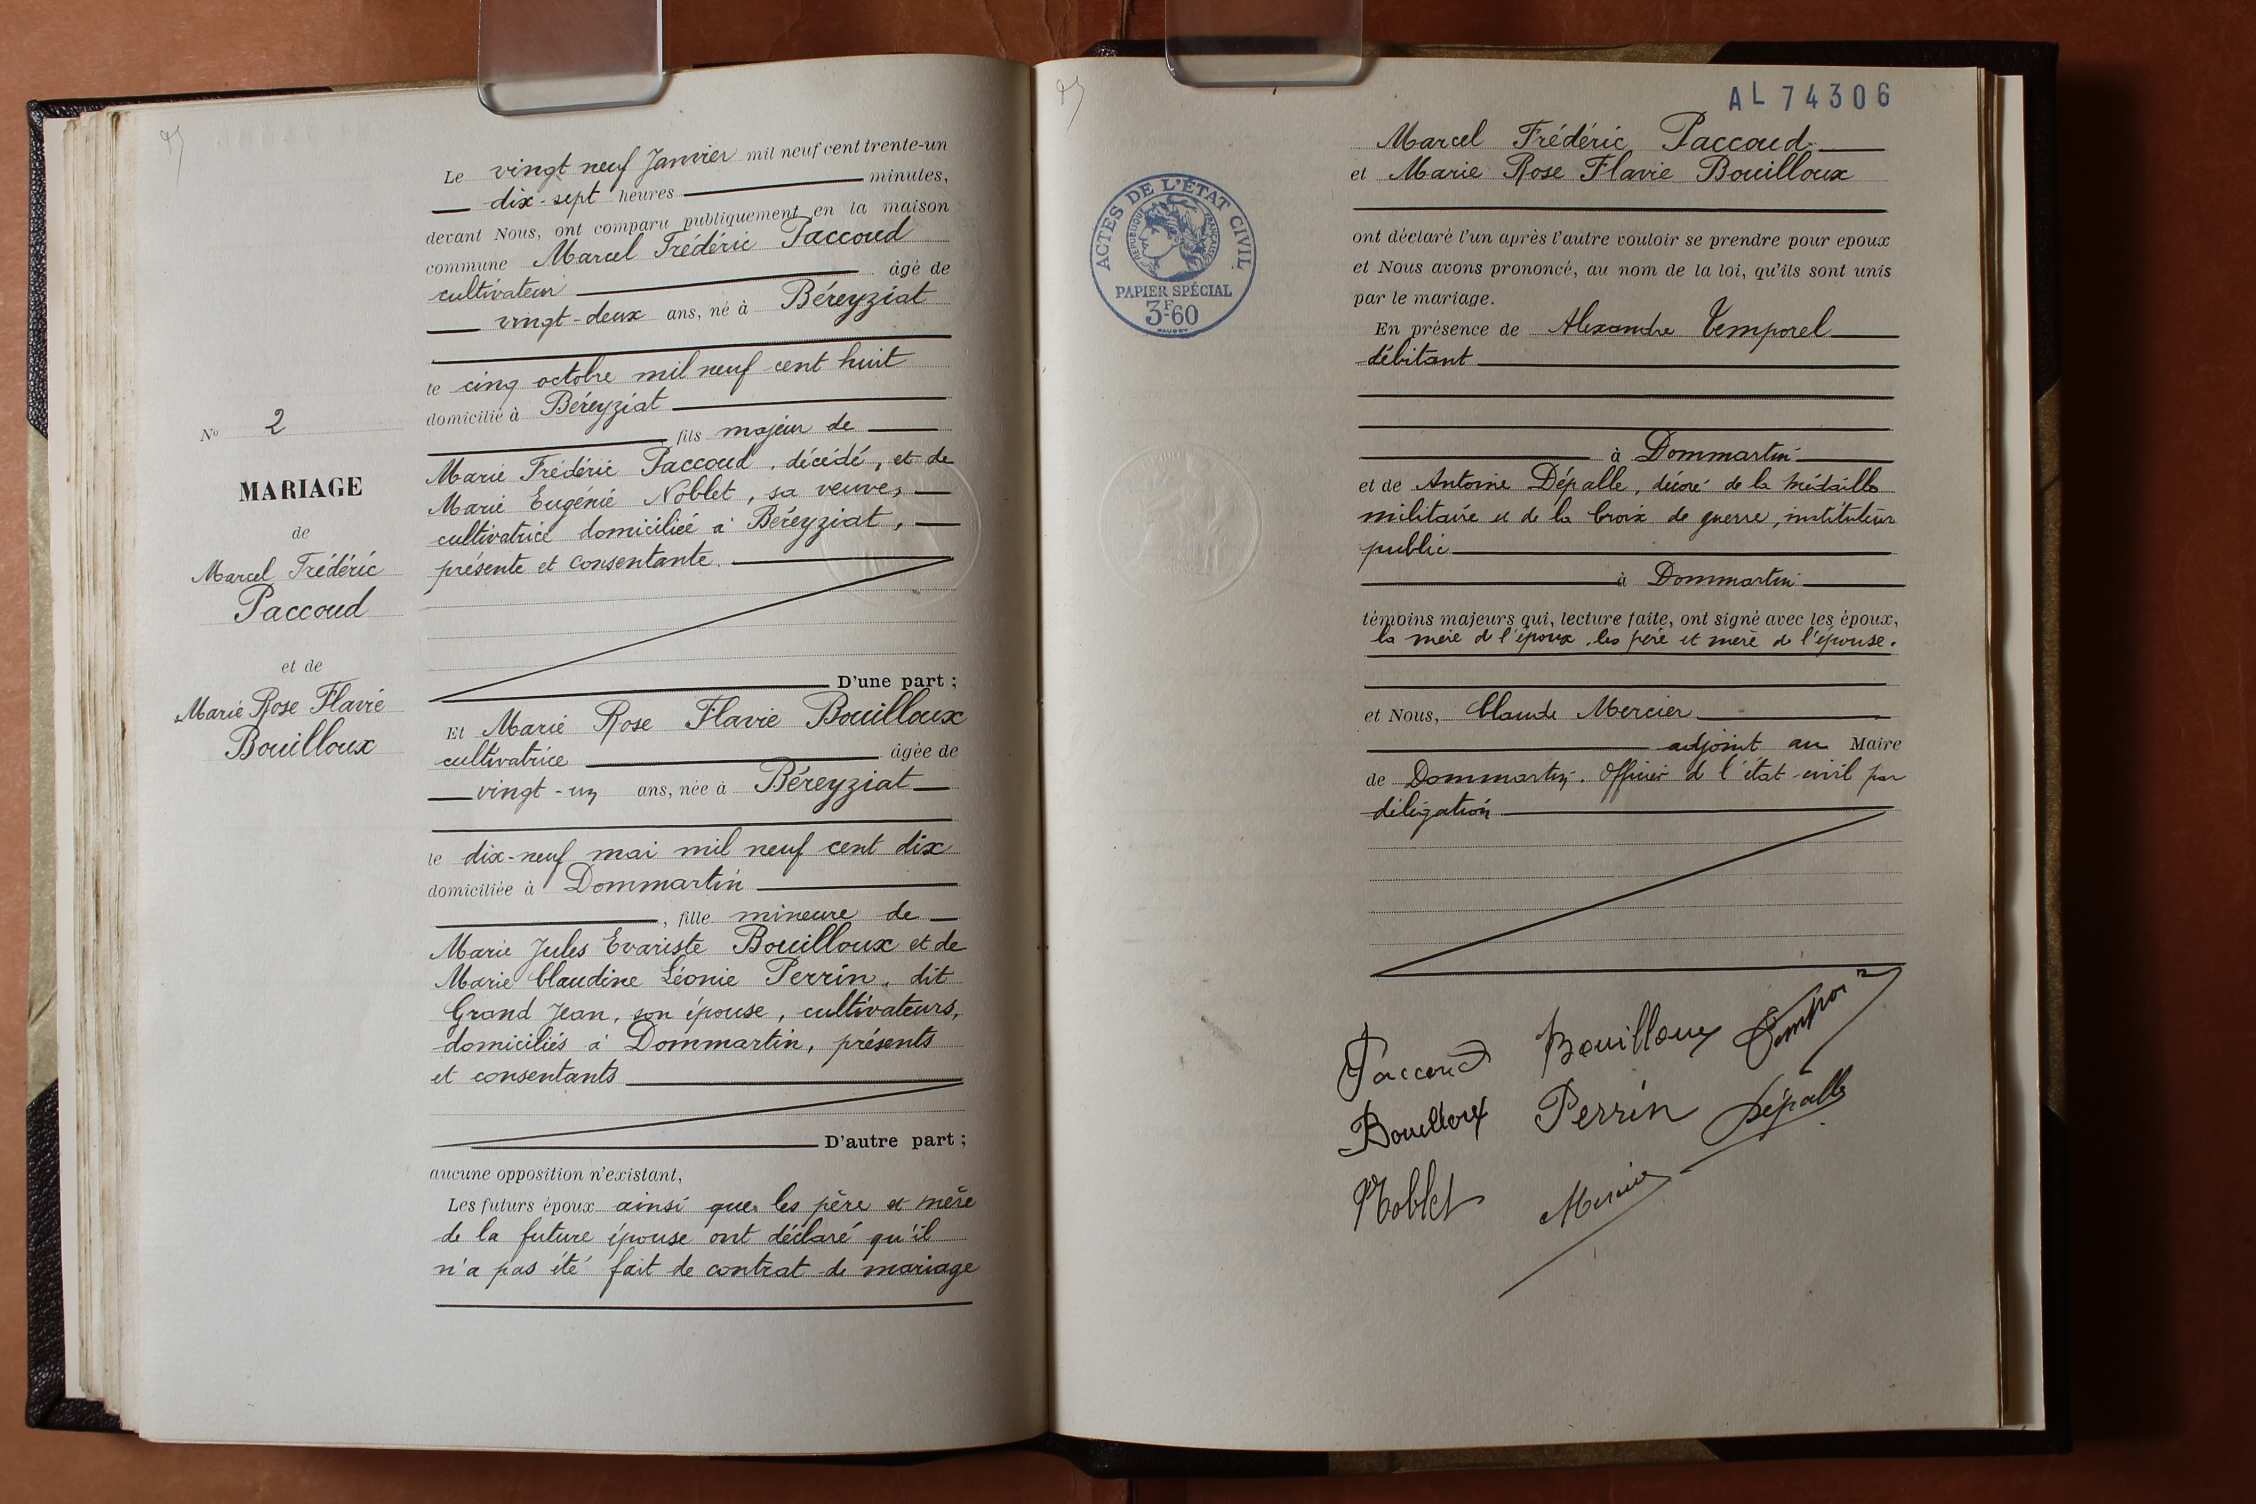 Le vingt neuf Janvier mil neuf cent trente-un
dix-sept heures minutes,
devant Nous, ont comparu publiquement en la maison
commune Marcel Frédéric Paccoud
cultivateur âgé de
vingt-deux ans, né à Béreyziat
le cinq octobre mil neuf cent huit
domicilié à Béreyziat
fils majeur de
Marie Frédéric Paccoud, décédé, et de
Marie Eugénie Noblet, sa veuve,
cultivatrice domiciliée à Béreyziat,
présente et consentante.
D'une part ;
Nº 2
MARIAGE
de
Marcel Frédéric
Paccoud
et de
Marie Rose Flavie
Bouilloux
Et Marie Rose Flavie Bouilloux
cultivatrice âgée de
vingt-un ans, née à Béreyziat
le dix-neuf mai mil neuf cent dix
domiciliée à Dommartin
, fille mineure de
Marie Jules Evariste Bouilloux et de
Marie Claudine Léonie Perrin, dit
Grand Jean, son épouse, cultivateurs,
domiciliés à Dommartin, présents
et consentants
D'autre part ;
aucune opposition n'existant,
Les futurs époux ainsi que les père et mère
de la future épouse ont déclaré qu'il
n'a pas été fait de contrat de mariage
AL 74306
ACTES DE L'ÉTAT CIVIL
RÉPUBLIQUE FRANÇAISE
PAPIER SPÉCIAL
3F.60
Marcel Frédéric Paccoud
et Marie Rose Flavie Bouilloux
ont déclaré l'un après l'autre vouloir se prendre pour epoux
et Nous avons prononcé, au nom de la loi, qu'ils sont unis
par le mariage.
En présence de Alexandre Temporel
débitant
à Dommartin
et de Antoine Dépalle, décoré de la médaille
militaire et de la Croix de guerre, instituteur
public
à Dommartin
témoins majeurs qui, lecture faite, ont signé avec les époux,
la mère de l'époux, les père et mère de l'épouse.
et Nous, Claude Mercier
adjoint au Maire
de Dommartin. Officier de l'état-civil par
délégation
Paccoud Bouilloux
Bouilloux Perrin Dépalle
Noblet Mercier